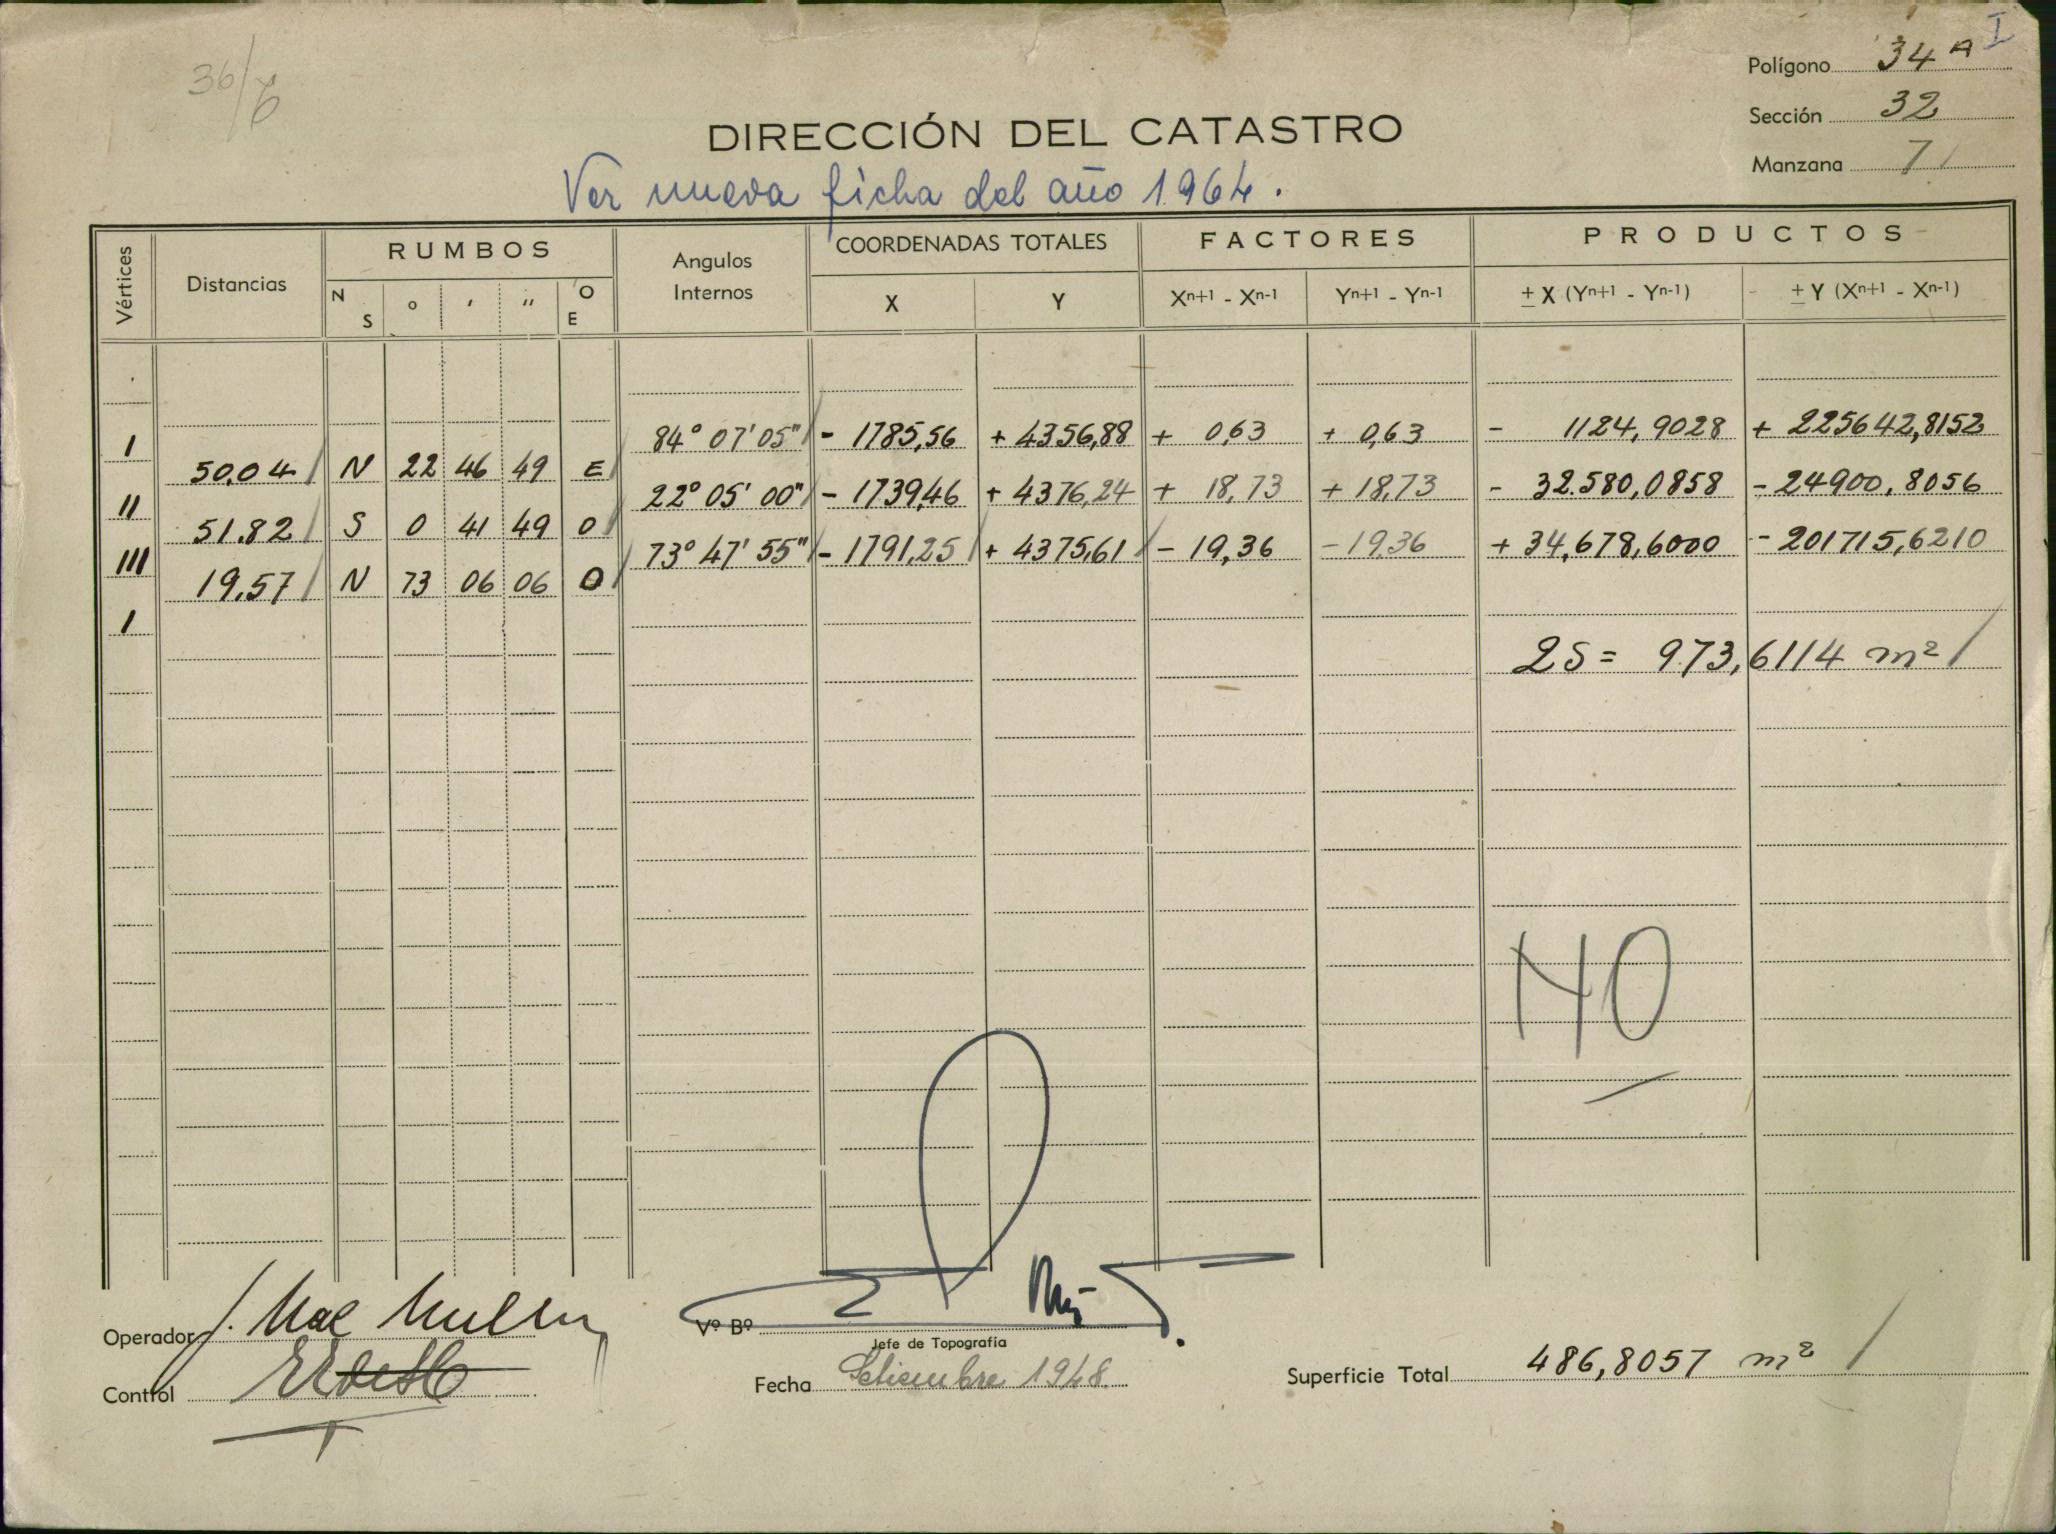 36/6
Polígono 34 A I
Sección 32
Manzana 7
DIRECCIÓN DEL CATASTRO
Ver nueva ficha del año 1964.
Vértices Distancias RUMBOS Angulos Internos COORDENADAS TOTALES FACTORES PRODUCTOS
N S o ' '' O E X Y Xn+1 - Xn-1 Yn+1 - Yn-1 ± X (Yn+1 - Yn-1) ± Y (Xn+1 - Xn-1)
I 84° 07' 05" - 1785,56 + 4356,88 + 0,63 + 0,63 - 1124,9028 + 225642,8152
50.04 N 22 46 49 E
II 22° 05' 00" - 1739,46 + 4376,24 + 18,73 + 18,73 - 32.580,0858 - 24900,8056
51.82 S 0 41 49 O
III 73° 47' 55" - 1791,25 + 4375,61 - 19,36 - 19,36 + 34,678,6000 - 201715,6210
19.57 N 73 06 06 O
I
2S = 973,6114 m²
NO
Operador J. Mac Mullen
Vº Bº
Jefe de Topografía
Control
Fecha Setiembre 1948.
Superficie Total 486,8057 m²